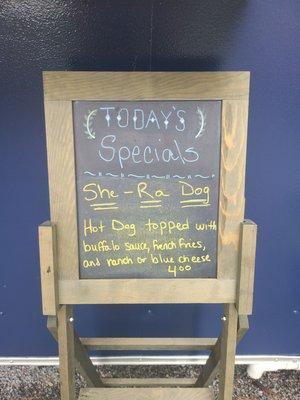 TODAY'S
Specials
She-Ra Dog
Hot Dog topped with
buffalo sauce, french fries,
and ranch or blue cheese
4.00